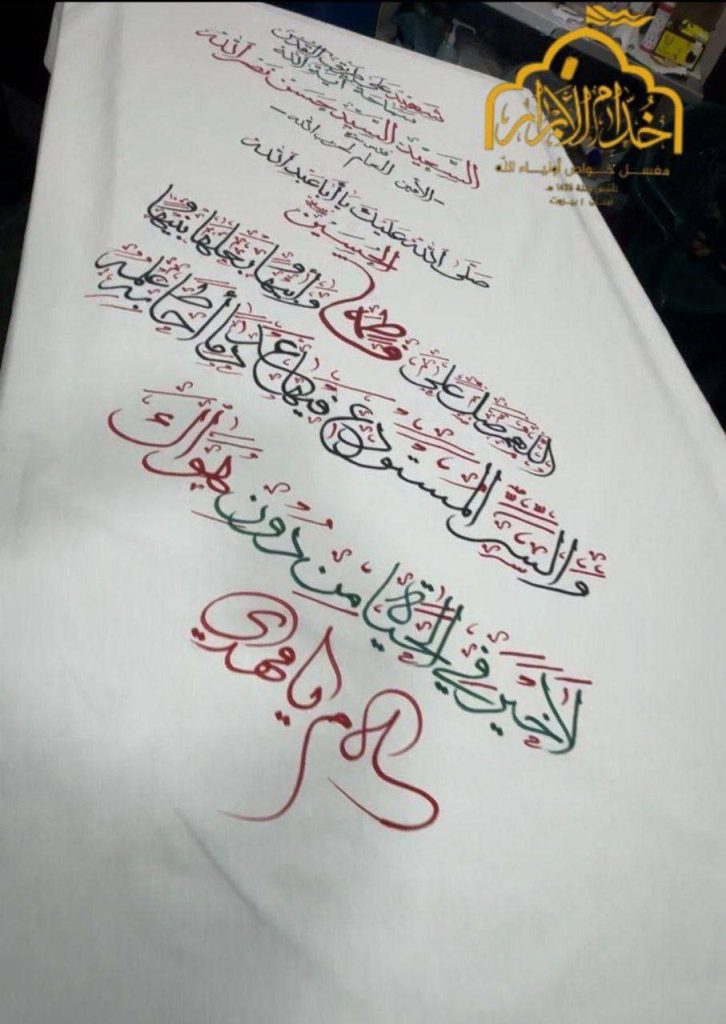 شهيد على طريق القدس
سماحة آية الله
السعيد السيد حسن نصر الله
- الأمين العام لحزب الله -
صلى الله عليك يا أبا عبد الله
الحسين
اللهم صل على فاطمة وأبيها وبعلها وبنيها
والسر المستودع فيها عدد ما أحاط به علمك
لا خير في الحياة من دون هواك
سلام يا مهدي
خدام الأبرار
مغسل خواص أولياء الله
تأسس سنة 1439 هـ
لبنان / بيروت